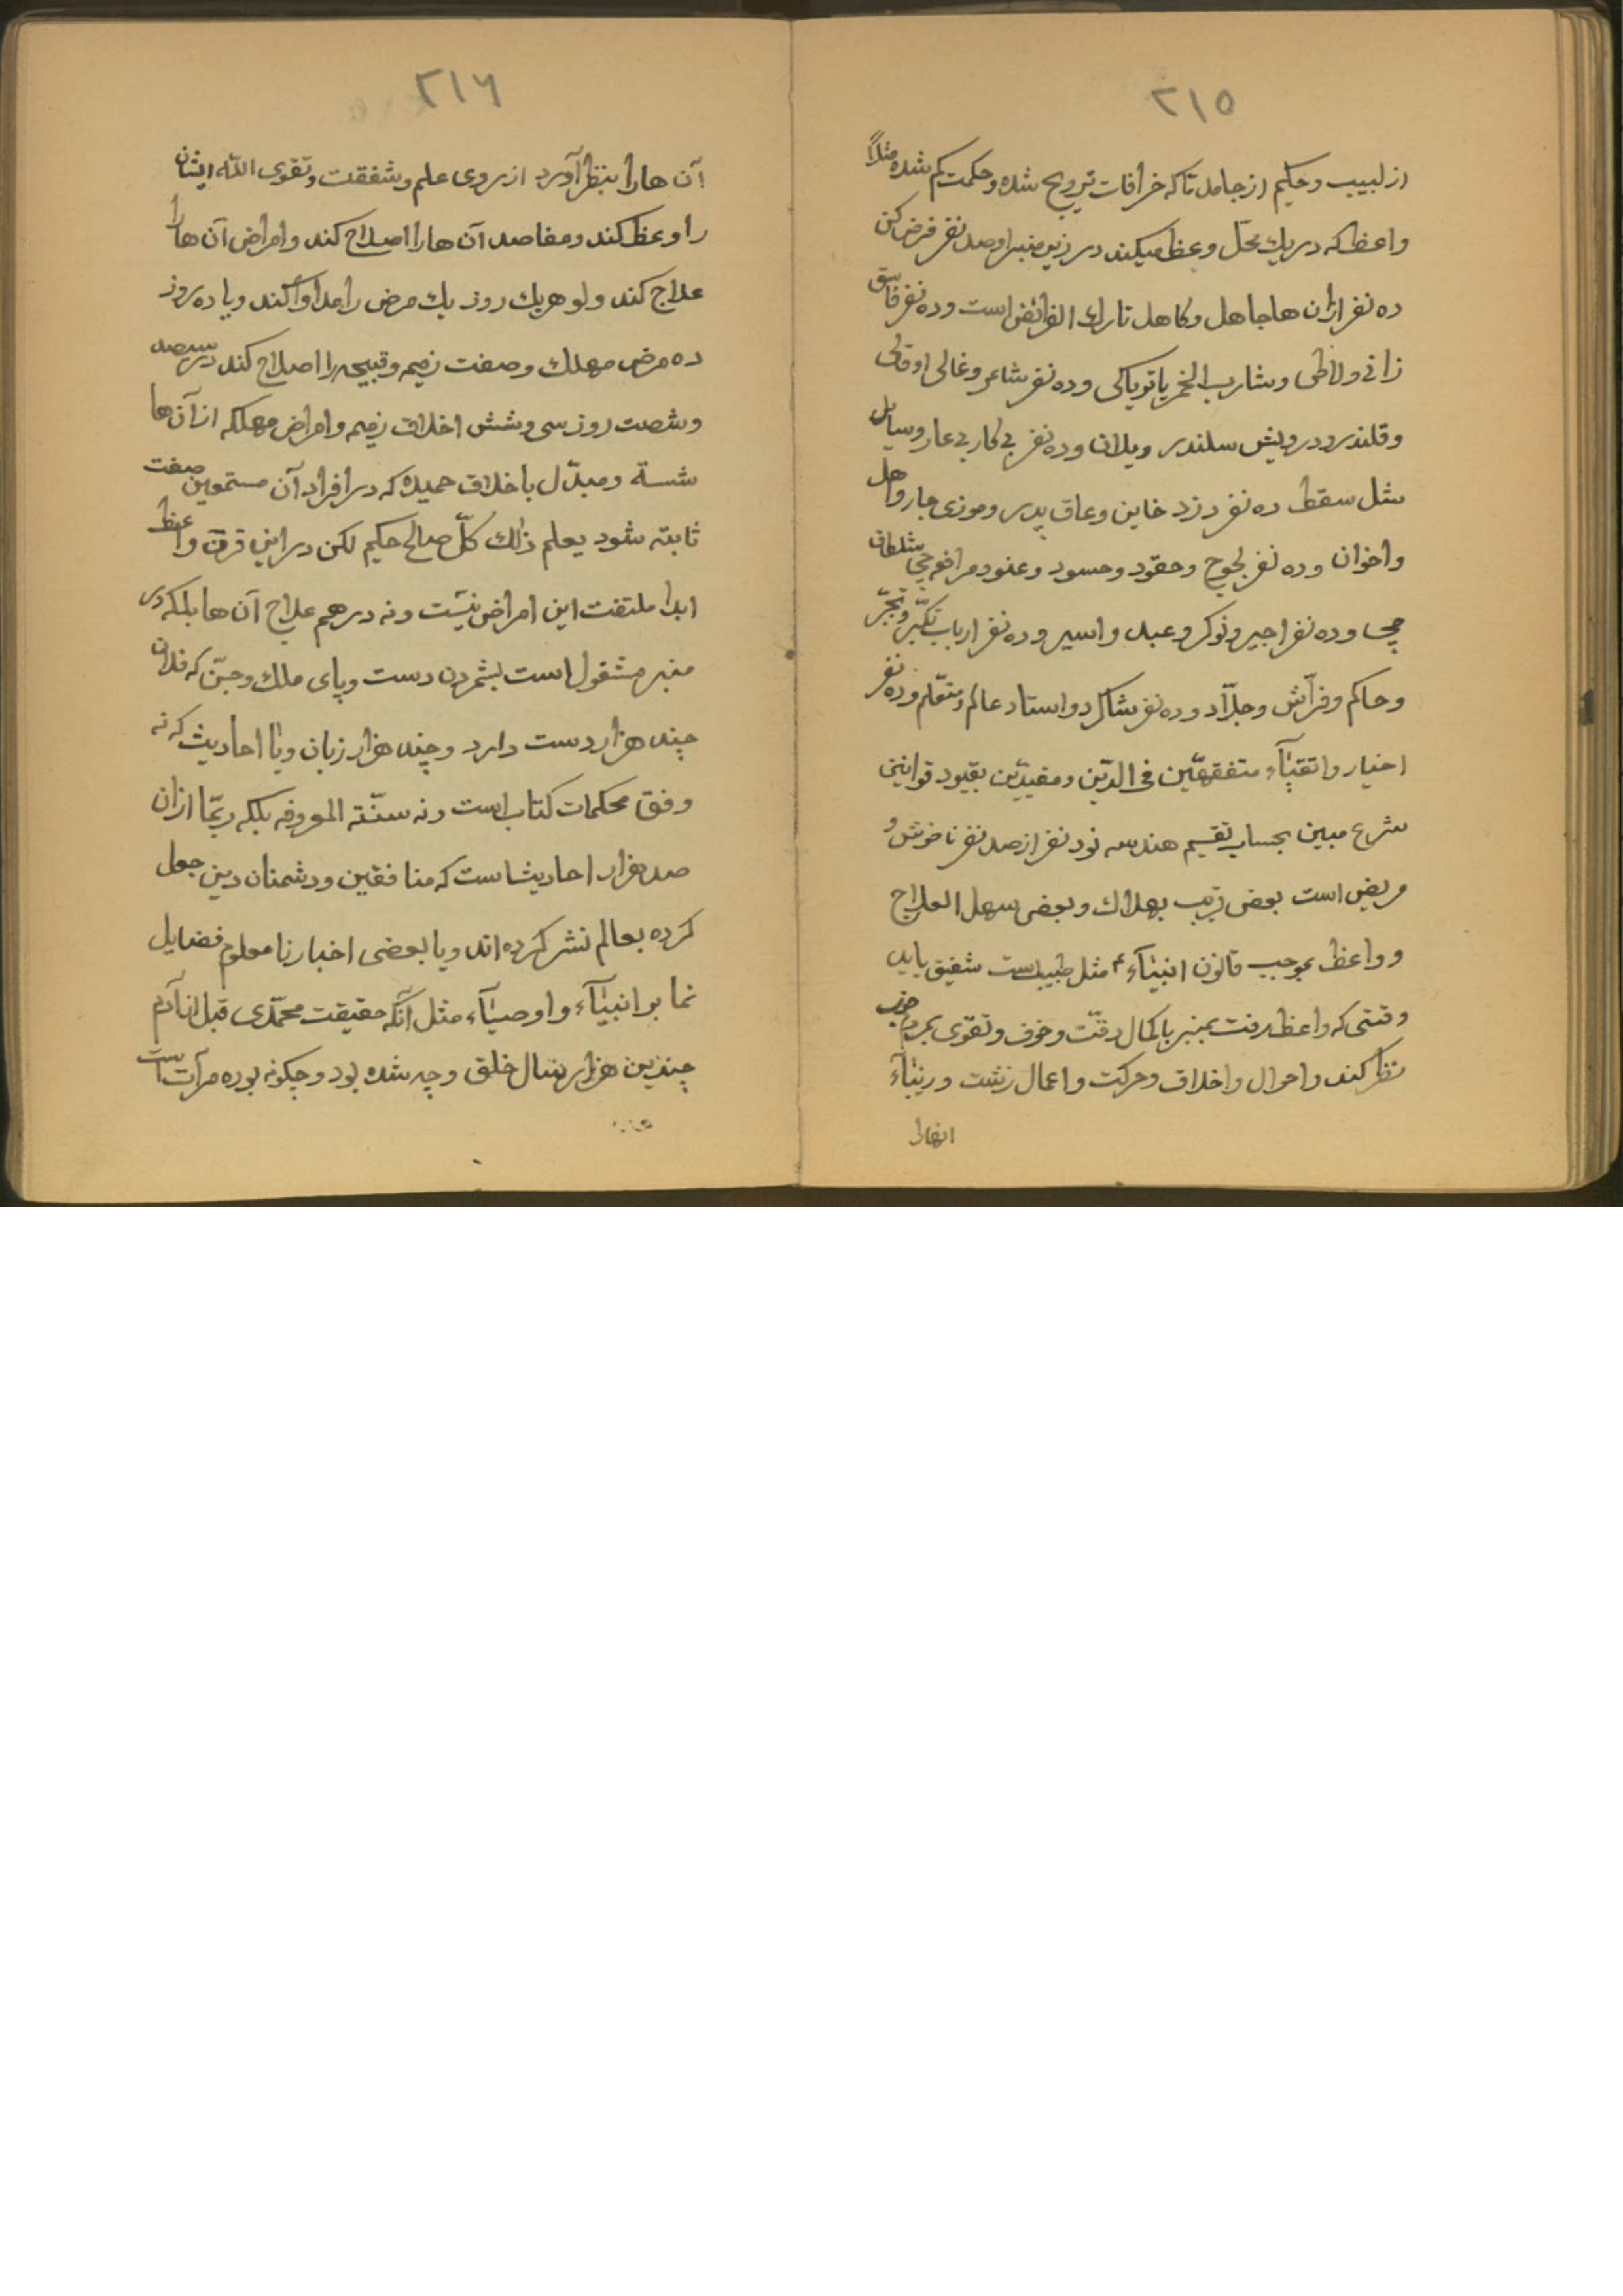 ۲۱۵
از لبیب و حکیم از جامد تا که خرافات ترویج شده و حکمت کم شده مثلاً
واعظ که در یك محلّ وعظ میکند در زیر منبر او صد نفر فرض کن
ده نفر ازان ها جاهل و کاهل تارك الفرائض است و ده نفر فاسق
زانی و لاطی و شارب الخمر یا تریاکی و ده نفر شاعر و غالی او قالی
و قلندر و درویش سلندر و یلان و ده نفر بی کار بی عار و سیابل
مثل سقط ده نفر دزد خاین و عاق پدر و موزی جار و اهل
و اخوان و ده نفر لجوج و حقود و حسود و عنود مرافعه چی شلطاق
چی و ده نفر اجیر و نوکر و عبد و اسیر و ده نفر ارباب تکبّر و تجبّر
و حاکم و فرّاش و جلّاد و ده نفر شاکرد و استاد عالم و متعّلم و ده نفر
اخیار و اتقیٰآء متفقهّین فی الدّین و مقیدّین بقیود قوانین
شرع مبین بحساب تقسیم هندسه نود نفر از صد نفر ناخوش و
مریض است بعضی قریب بهلاك و بعضی سهل العلاج
و واعظ بموجب قانون انبیٰآء ع مثل طبیبست شفیق باید
وقتی که واعظ رفت بمنبر با کمال دقّت و خوف و تقوی بمردم خوب
نظر کند و احوال و اخلاق و حرکت و اعمال زشت و زیبٰآء
انهارا
۲۱۶
آن هارا بنظر آورد از روی علم و شفقت و تقوی اللّه ایشان
را وعظ کند و مفاصد آن هارا اصلاح کند و امراض آن هارا
علاج کند و لو هر یك روز یك مرض را مداوآ کند و یا ده روز
ده مرض مهلك و صفت زمیم و قبیحه را اصلاح کند در سیصد
و شصت روز سی و شش اخلاق زمیم و امراض مهلکه از آن ها
شسته و مبدّل باخلاق حمیده که در افراد آن مستمعین صفت
ثابته شود یعلم ذٰلك کلّ صالح حکیم لکن در این قرن واعظ
ابدا ملتفت این امراض نیست و نه در هم علاج آن ها بلکه در
منبر مشغول است بشمردن دست و پای ملك و جنّ که فلان
چند هزار دست دارد و چند هزار زبان و یا احادیث که نه
وفق محکمات کتاب است و نه سنّته المعروفه بلکه ربّما ازان
صد هزار احادیثاست که منافقین و دشمنان دین جعل
کرده بعالم نشر کرده اند و یا بعضی اخبار نا معلوم فضایل
نما بر انبیٰآء و اوصیٰآء مثل آنکه حقیقت محمّدی قبل از آدم
چندین هزار سال خلق و چه شده بود و چکونه بوده مرآت است